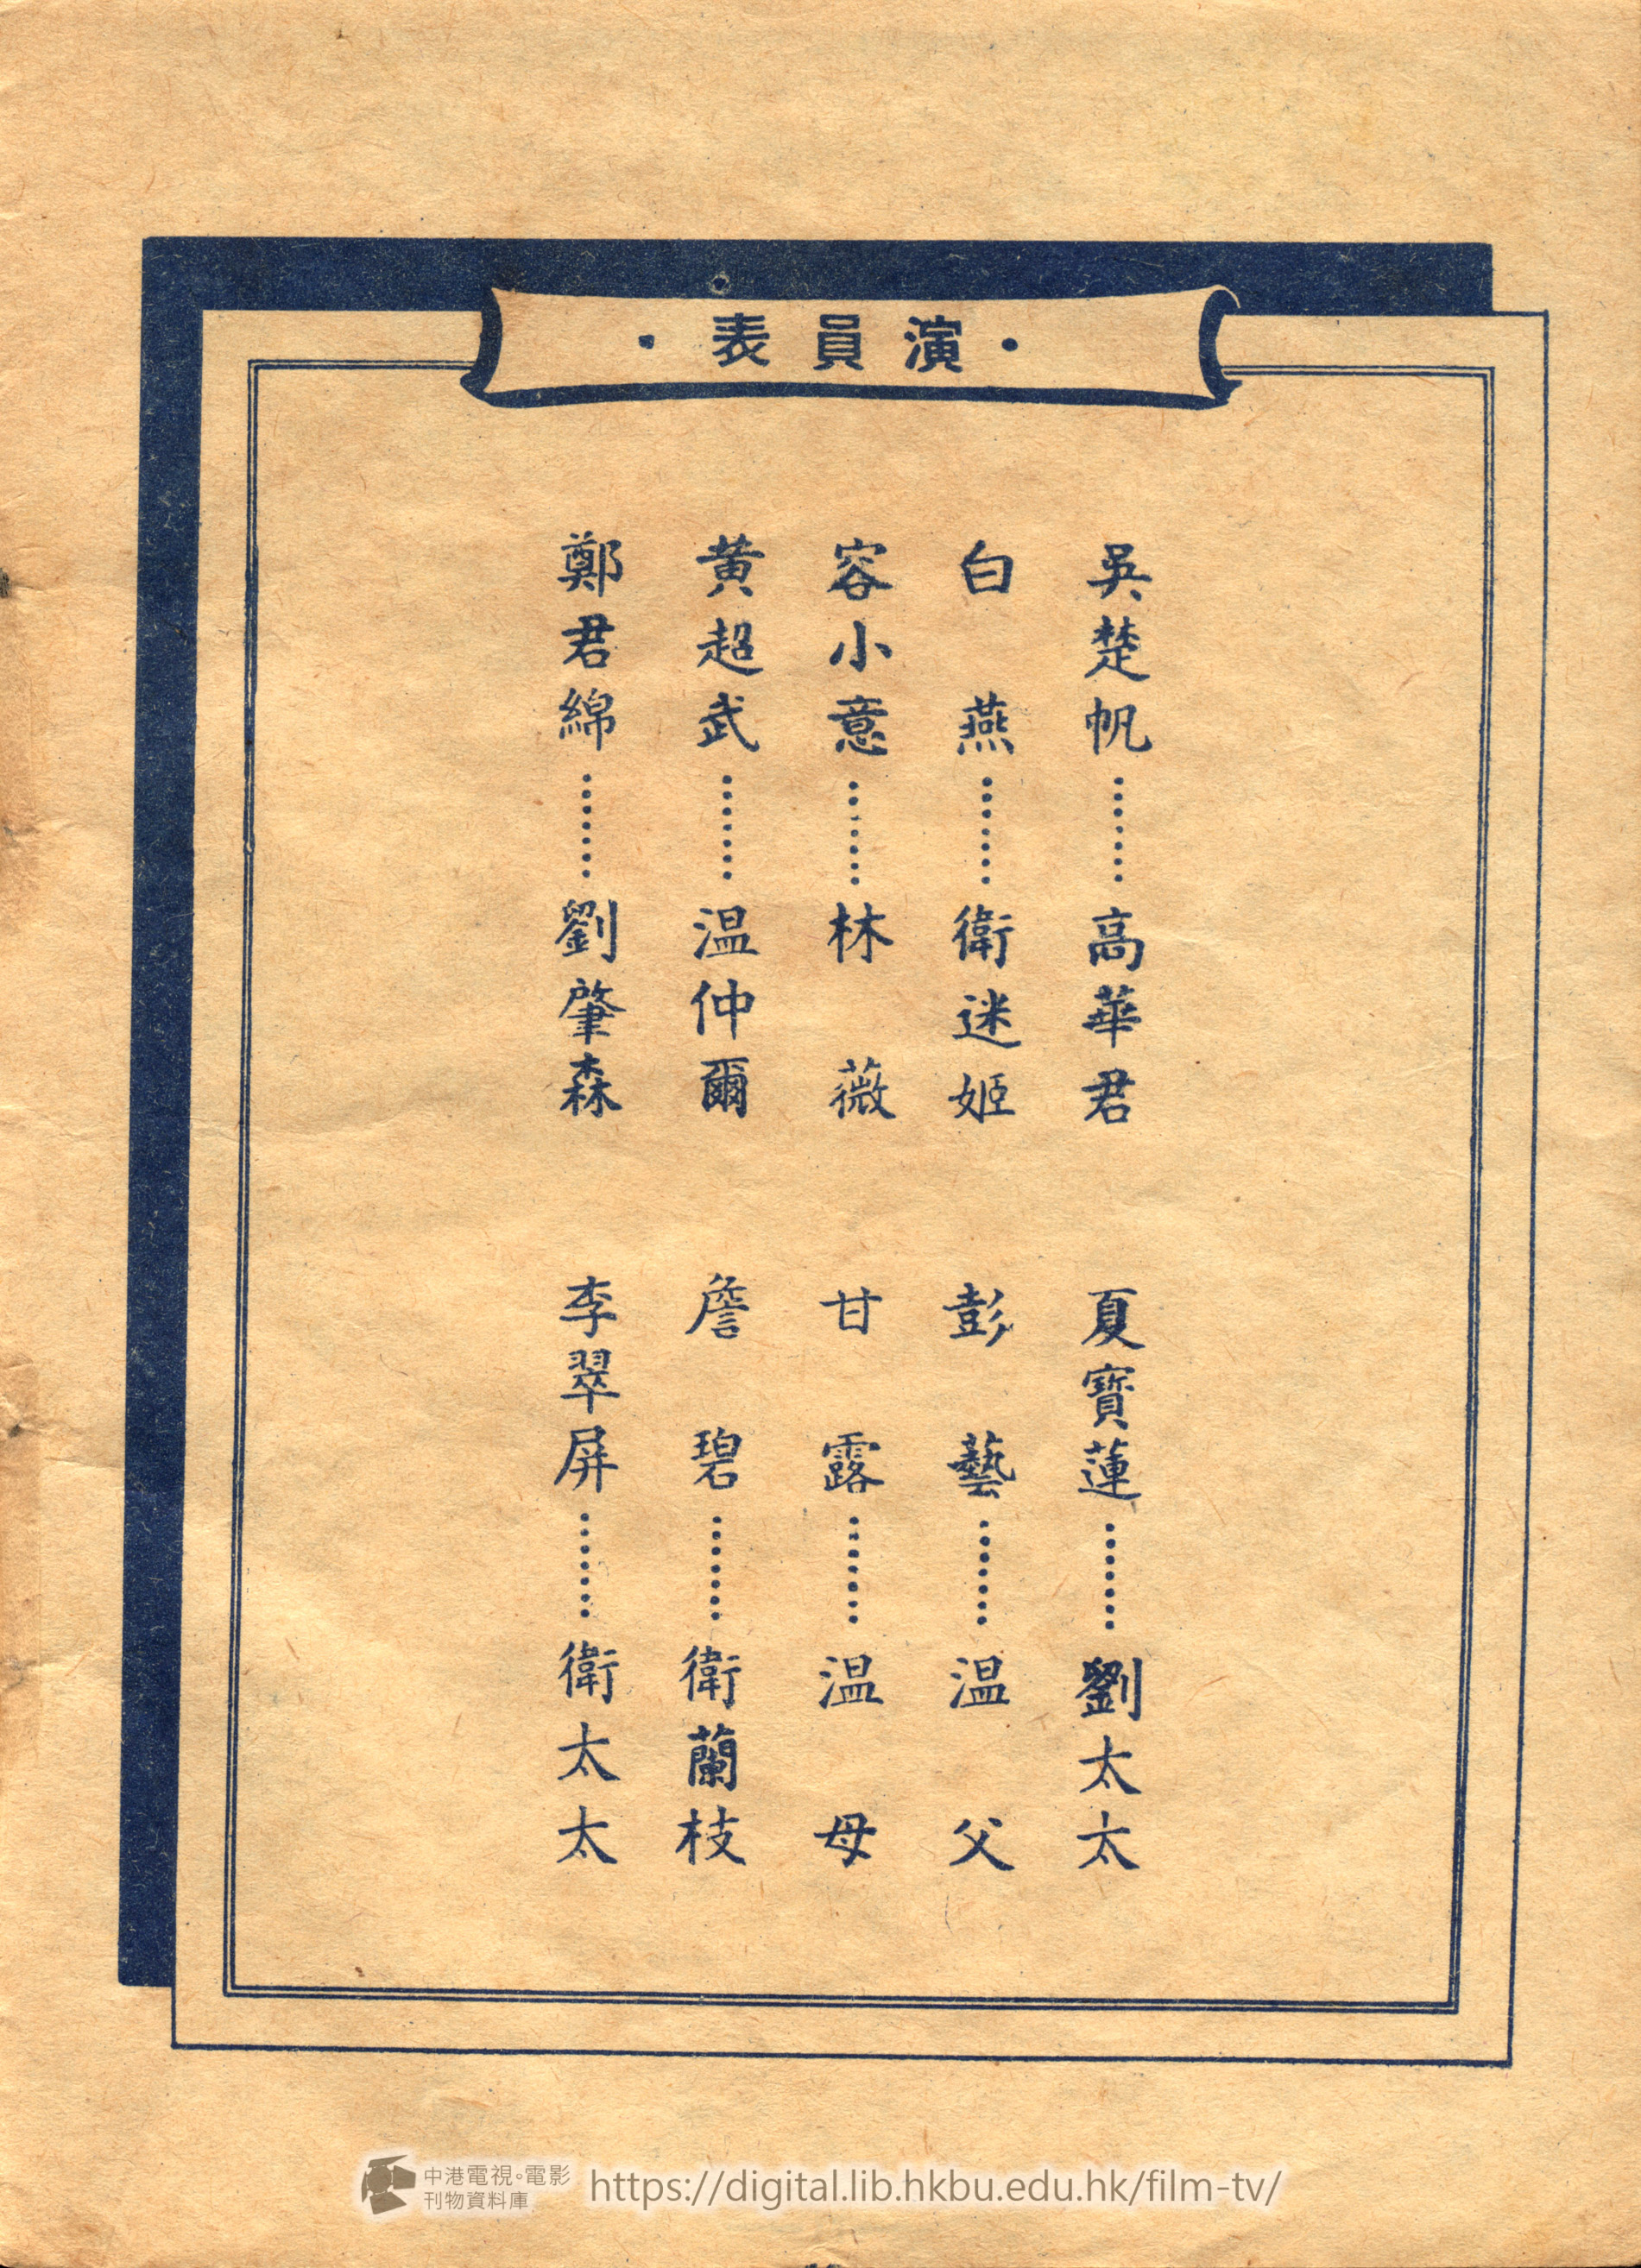 ·演員表·
吳楚帆……高華君
白燕……衛迷姬
容小意……林薇
黄超武……温仲爾
鄭君綿……劉肇森
夏寶蓮……劉太太
彭藝……温父
甘露……温母
詹碧……衛蘭枝
李翠屏……衛太太
中港電視。電影
刊物資料庫
https://digital.lib.hkbu.edu.hk/film-tv/